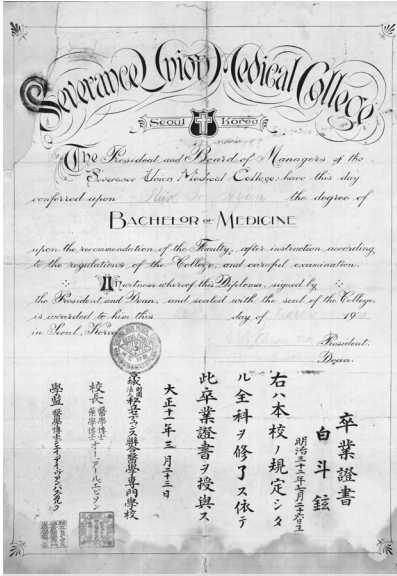 Severance Union Medical College
Seoul Korea
The President and Board of Managers of the
Severance Union Medical College have this day
conferred upon the degree of
BACHELOR OF MEDICINE
upon the recommendation of the Faculty, after instruction according
to the regulations of the College, and careful examination.
In witness whereof this Diploma, signed by
the President and Dean, and sealed with the seal of the College,
is awarded to him this day of 19
in Seoul, Korea.
President.
Dean.
卒業證書
白斗鉉
明治三十二年七月二十六日生
右ハ本校ノ規定シタ
ル全科ヲ修了ス依テ
此卒業證書ヲ授與ス
大正十一年三月二十三日
財團法人私立セブランス聯合醫學專門學校
校長 醫學博士 藥學博士 オー、アールエビソン
學監 醫學博士